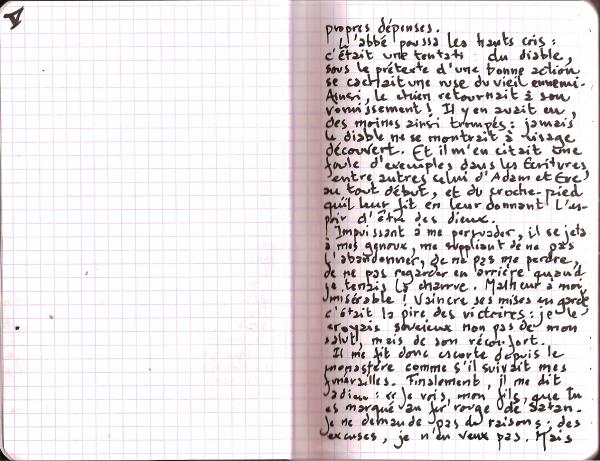 propres dépenses.
L'abbé poussa les hauts cris :
c'était une tentati du diable,
sous le prétexte d'une bonne action
se cachait une ruse du vieil ennemi.
Ainsi, le chien retournait à son
vomissement ! Il y en avait eu,
des moines ainsi trompés : jamais
le diable ne se montrait à visage
découvert. Et il m'en citait une
foule d'exemples dans les Écritures,
entre autres celui d'Adam et Ève
au tout début, et du croche-pied
qu'il leur fit en leur donnant l'es-
poir d'être des dieux.
Impuissant à me persuader, il se jeta
à mes genoux, me suppliant de ne pas
l'abandonner, de ne pas me perdre,
de ne pas regarder en arrière quand
je tenais la charrue. Malheur à moi,
misérable ! Vaincre ses mises en garde,
c'était la pire des victoires : je le
croyais soucieux non pas de mon
salut, mais de son réconfort.
Il me fit donc escorte depuis le
monastère comme s'il suivait mes
funérailles. Finalement, il me dit
adieu : « Je vois, mon fils, que tu
es marqué au fer rouge de Satan.
Je ne demande pas de raisons ; des
excuses, je n'en veux pas. Mais